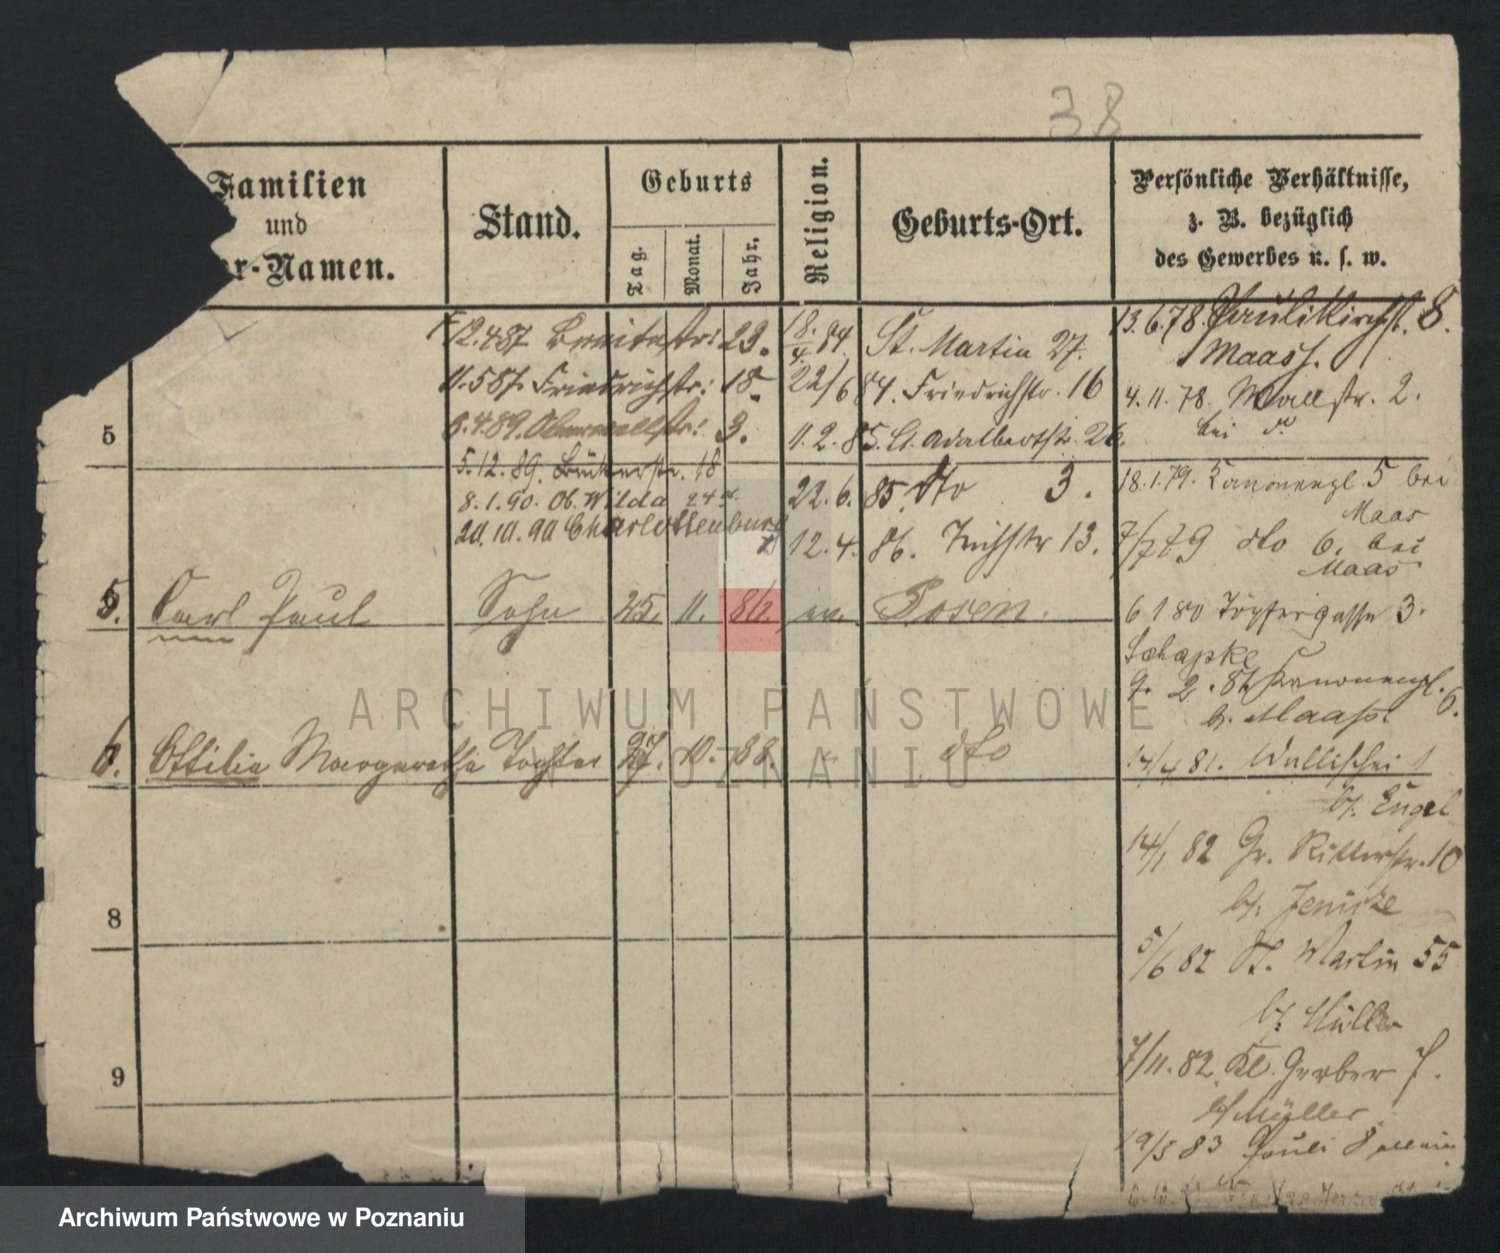 38
Familien
und
r-Namen.
Stand.
Geburts
Tag.
Monat.
Jahr.
Religion.
Geburts-Ort.
Persönliche Verhältnisse,
z. B. bezüglich
des Gewerbes u. s. w.
12.4.87 Breitestr: 23.
11.5.87. Friedrichstr: 18.
3.4.89. Oberwallstr: 3.
5.12.89. 18
8.1.90. Ob. Wilda 24
20.10.90 Charlottenburg
18./4. 84. St. Martin 27.
22/6 84. Friedrichstr. 16
11.2.85. St. Adalbertstr. 26.
22.6.85. dto 3.
12.4.86. 13.
13.6.78. Paulikirchst. 8.
Maass.
4.11.78. Wallstr. 2.
bei do
18.1.79. Kanonengl 5 bei
Maas
7/7 79 dto 6. bei
Maas
6 1 80 Töpfergasse 3.
Schapke
9. 2. 81 Kanonengl. 6.
b. Maass
14/4 81. Wallischei 1
b/. Engel
14/1 82 Gr. Ritterstr. 10
b/. Jenicke
5/6 82 St. Martin 55
b/. Müller
7/11. 82. Kl. Gerber 7.
b/ Müller
19/5 83 Pauli 8
5
5. Carl Paul Sohn 25. 11. 86. ev. Posen.
6. Ottilie Margarethe Tochter 27. 10. 88. dto
8
9
ARCHIWUM PAŃSTWOWE
W POZNANIU
Archiwum Państwowe w Poznaniu